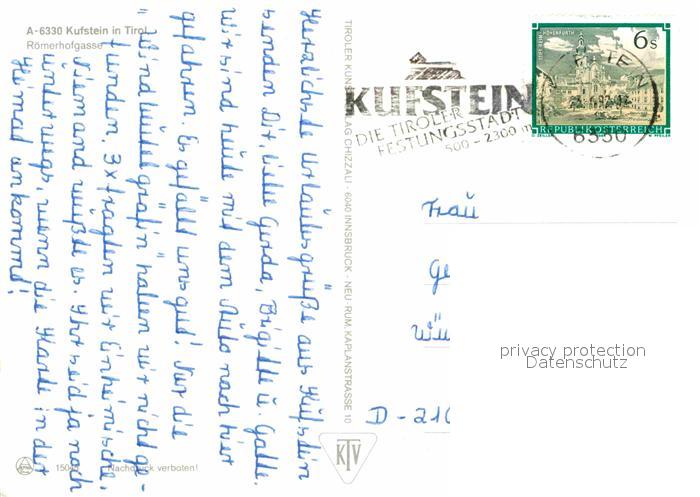 A-6330 Kufstein in Tirol
Römerhofgasse
Herzlichste Urlaubsgrüße aus Kufstein
senden Dir, liebe Gerda, Brigitte u. Galle.
Wir sind heute mit dem Auto nach hier
gefahren. Es gefällt uns gut! Nur die
"Windbeutelgräfin" haben wir nicht ge-
funden 3x fragten wir Einheimische,
Niemand wußte es. Ihr seid ja noch
unterwegs, wenn die Karte in der
Heimat ankommt!
15045 Nachdruck verboten!
TIROLER KUNSTVERLAG CHIZZALI · 6040 INNSBRUCK - NEU RUM, KAPLANSTRASSE 10
KTV
KUFSTEIN
DIE TIROLER
FESTUNGSSTADT
500 - 2300 m
STIFT REIN - HOHENFURTH
6 s
REPUBLIK ÖSTERREICH
6330
Frau
Ge
Wil
D - 21
privacy protection
Datenschutz